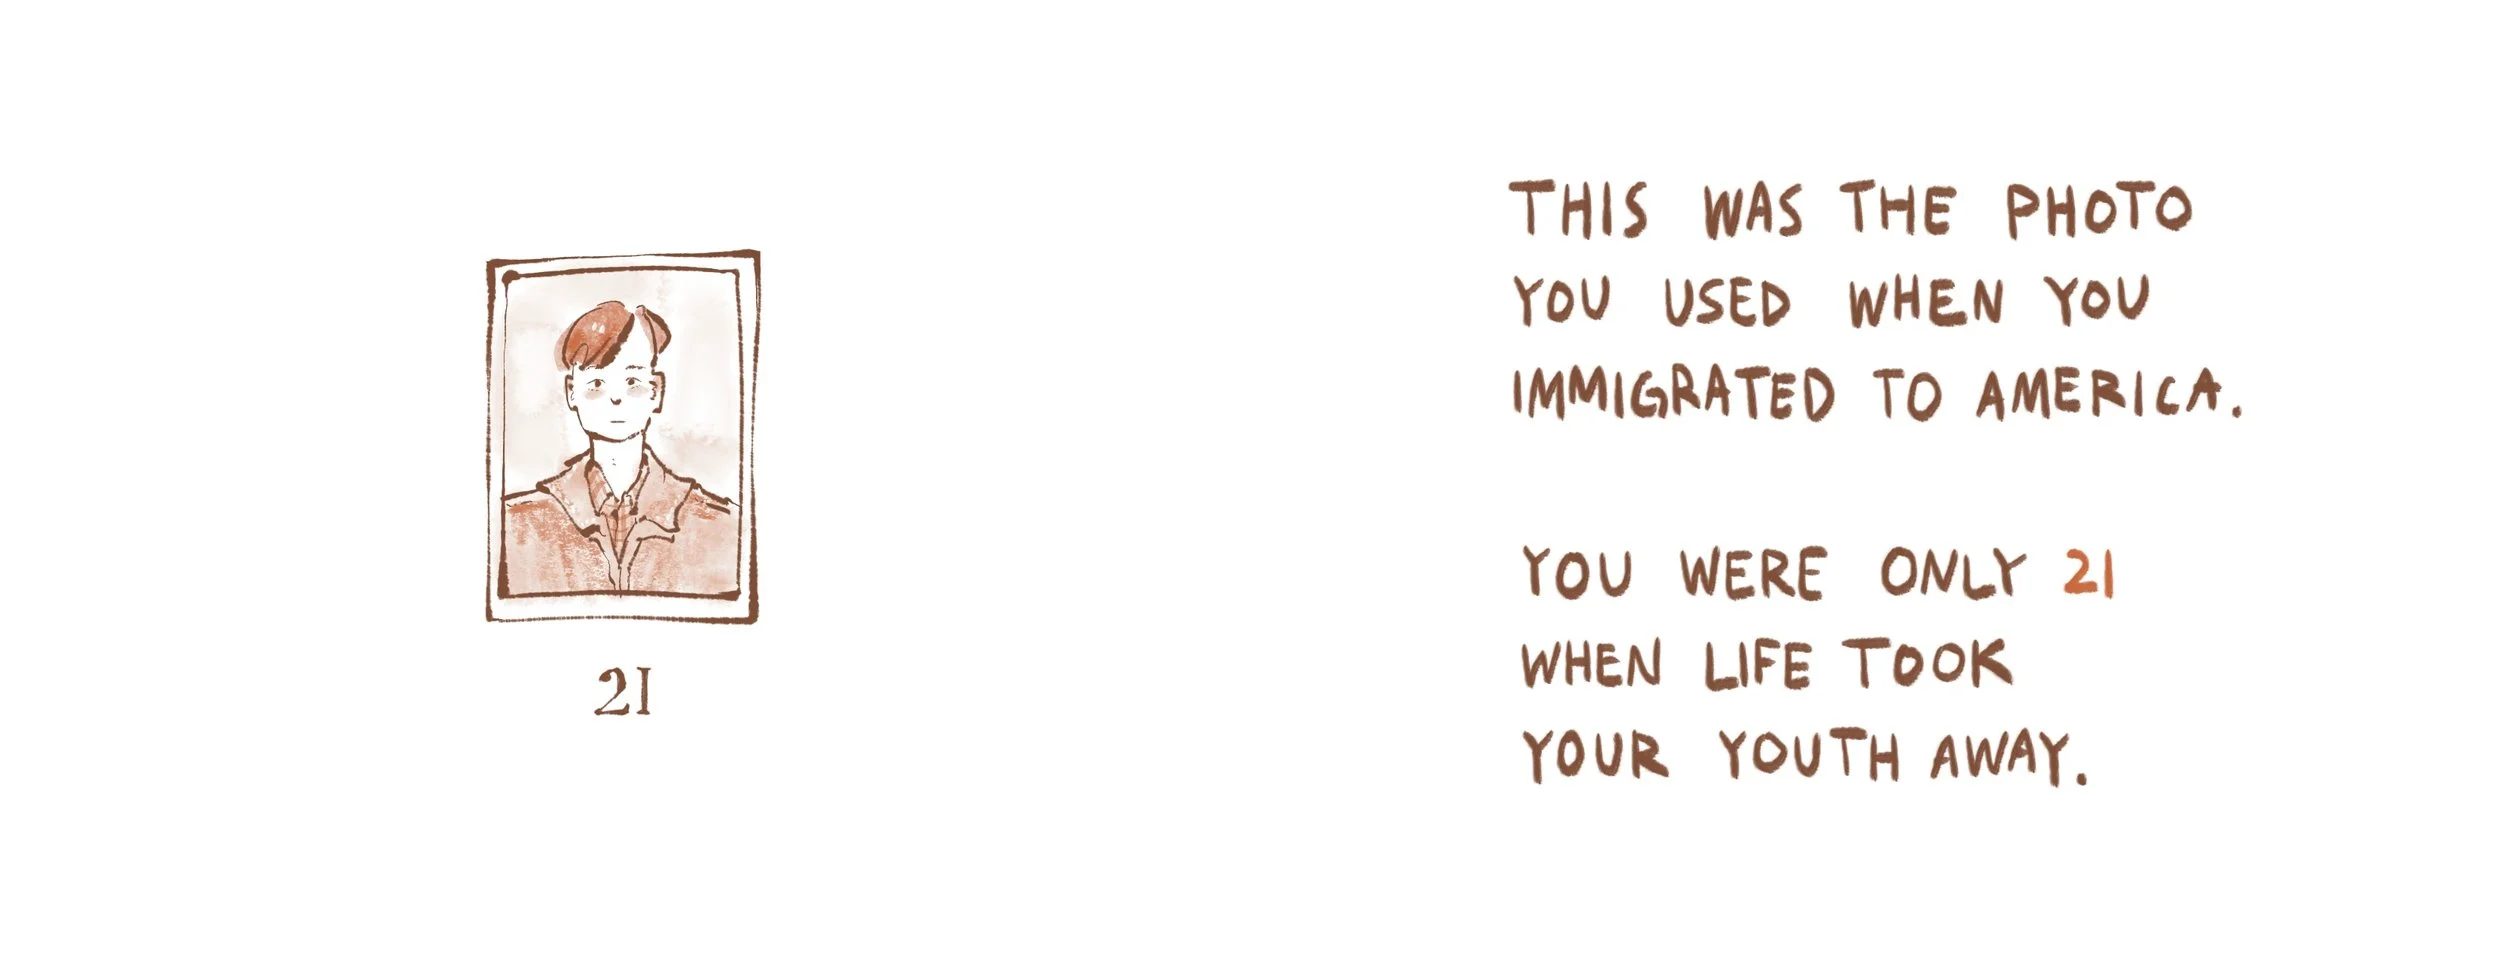 21
THIS WAS THE PHOTO
YOU USED WHEN YOU
IMMIGRATED TO AMERICA.
YOU WERE ONLY 21
WHEN LIFE TOOK
YOUR YOUTH AWAY.